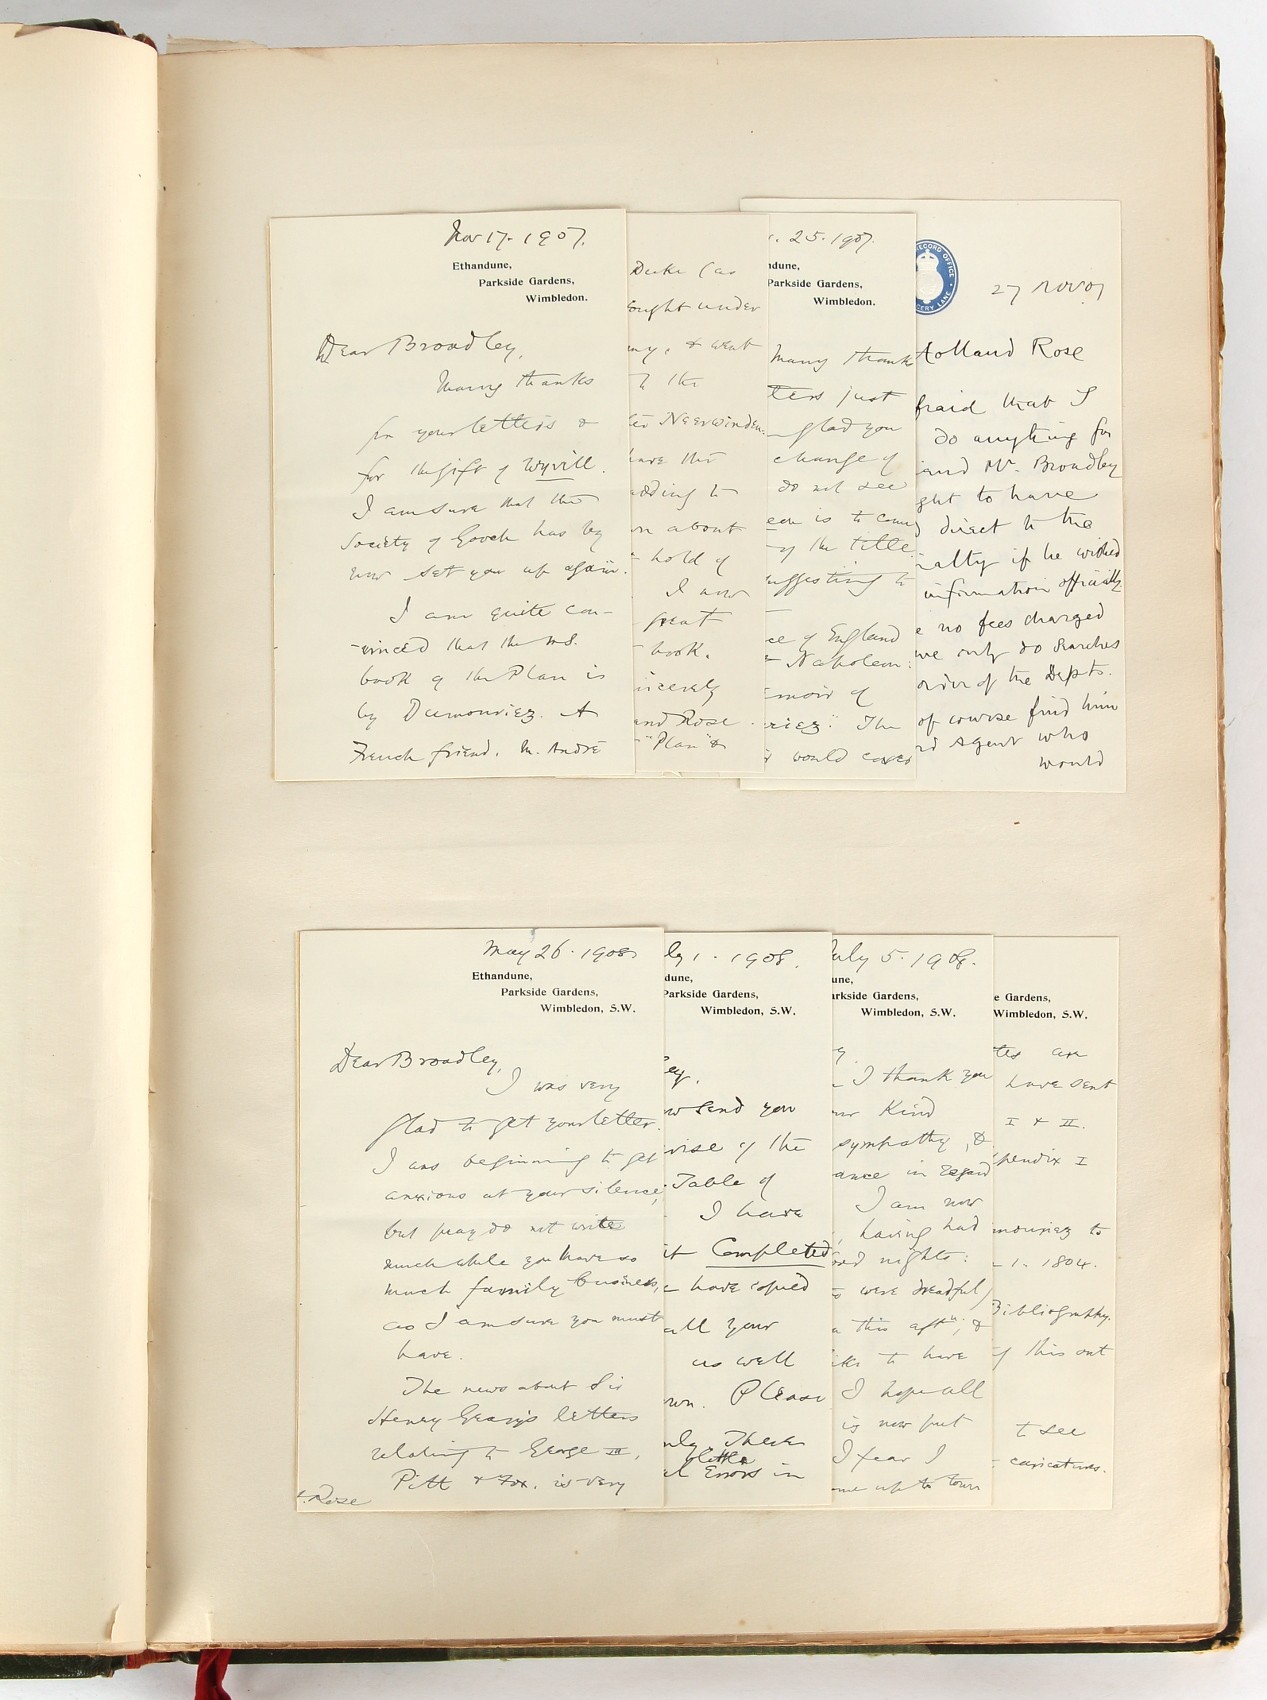 Nov 17. 1907.
Ethandune,
Parkside Gardens,
Wimbledon.
Dear Broadley,
Many thanks
for your letters &
for the gift of Wyvill.
I am sure that the
Society of Gooch has by
now set you up again.
I am quite con-
-vinced that the MS.
book of the Plan is
by Dumouriez. A
French friend, M. André
Duke (as
ought under
ny, & went
the
Neerwinden.
have this
adding to
n about
hold of
I am
great
book.
incerely
and Rose
"Plan" &
. 25. 1907.
ndune,
Parkside Gardens,
Wimbledon.
Many thanks
tters just
glad you
change of
do not see
eon is to come
of the title.
uggesting to
ce of England
Napoleon:
emoir of
riez". The
would cover
RECORD OFFICE
CERY LANE
27 Nov 07
Holland Rose
fraid that I
do anything for
and Mr. Broadley
ght to have
direct to the
alty if he wished
information officially
e no fees charged
we only do searches
order of the Depts.
of course find him
rd Agent who
would
May 26. 1908
Ethandune,
Parkside Gardens,
Wimbledon, S.W.
Dear Broadley,
I was very
glad to get your letter.
I was beginning to get
anxious at your silence,
but pray do not write
much while you have so
much family business,
as I am sure you must
have.
The news about Sir
Henry Geary's letters
relating to George III,
Pitt & Fox, is very
Rose
ly 1. 1908.
dune,
Parkside Gardens,
Wimbledon, S.W.
ey,
w send you
vise of the
Table of
I have
it Completed,
have copied
all your
as well
wn. Please
nly. There
little
al Errors in
July 5. 1908.
une,
arkside Gardens,
Wimbledon, S.W.
y.
I thank you
ur kind
sympathy, &
ance in regard
I am now
having had
ad nights:
were dreadful
this aftn, &
to have
I hope all
is now put
I fear I
me up to town
e Gardens,
Wimbledon, S.W.
tes are
have sent
I & II.
ppendix I
mouriez to
1. 1804.
Bibliography.
of this out
to see
caricatures.